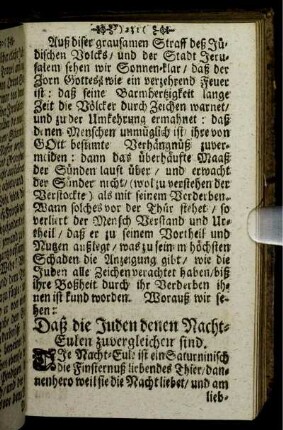 )231(
Auß diser grausamen Straff deß Jü-
dischen Volcks/ und der Stadt Jeru-
salem sehen wir Sonnen-klar/ daß der
Zorn Gottes/ wie ein verzehrend Feuer
ist: daß seine Barmhertzigkeit lange
Zeit die Völcker durch Zeichen warnet/
und zu der Umkehrung ermahnet: daß
denen Menschen unmüglich ist/ ihre von
GOtt bestimte Verhängnüß zuver-
meiden: dann das überhäufte Maaß
der Sünden laust über/ und erwacht
der Sünder nicht/ (wol zu verstehen der
Verstockte) als mit seinem Verderben.
Wann solches vor der Thür stehet/ so
verliert der Mensch Verstand und Ur-
theil/ daß er zu seinem Vortheil und
Nutzen außlegt/ was zu seinem höchsten
Schaden die Anzeigung gibt/ wie die
Juden alle Zeichen verachtet haben/ biß
ihre Boßheit durch ihr Verderben ih-
nen ist kund worden. Worauß wir se-
hen:
Daß die Juden denen Nacht-
Eulen zuvergleichen sind.
DIe Nacht-Eule ist ein Saturninisch
die Finsternuß liebendes Thier/ dan-
nenhero weil sie die Nacht liebet/ und am
lieb-